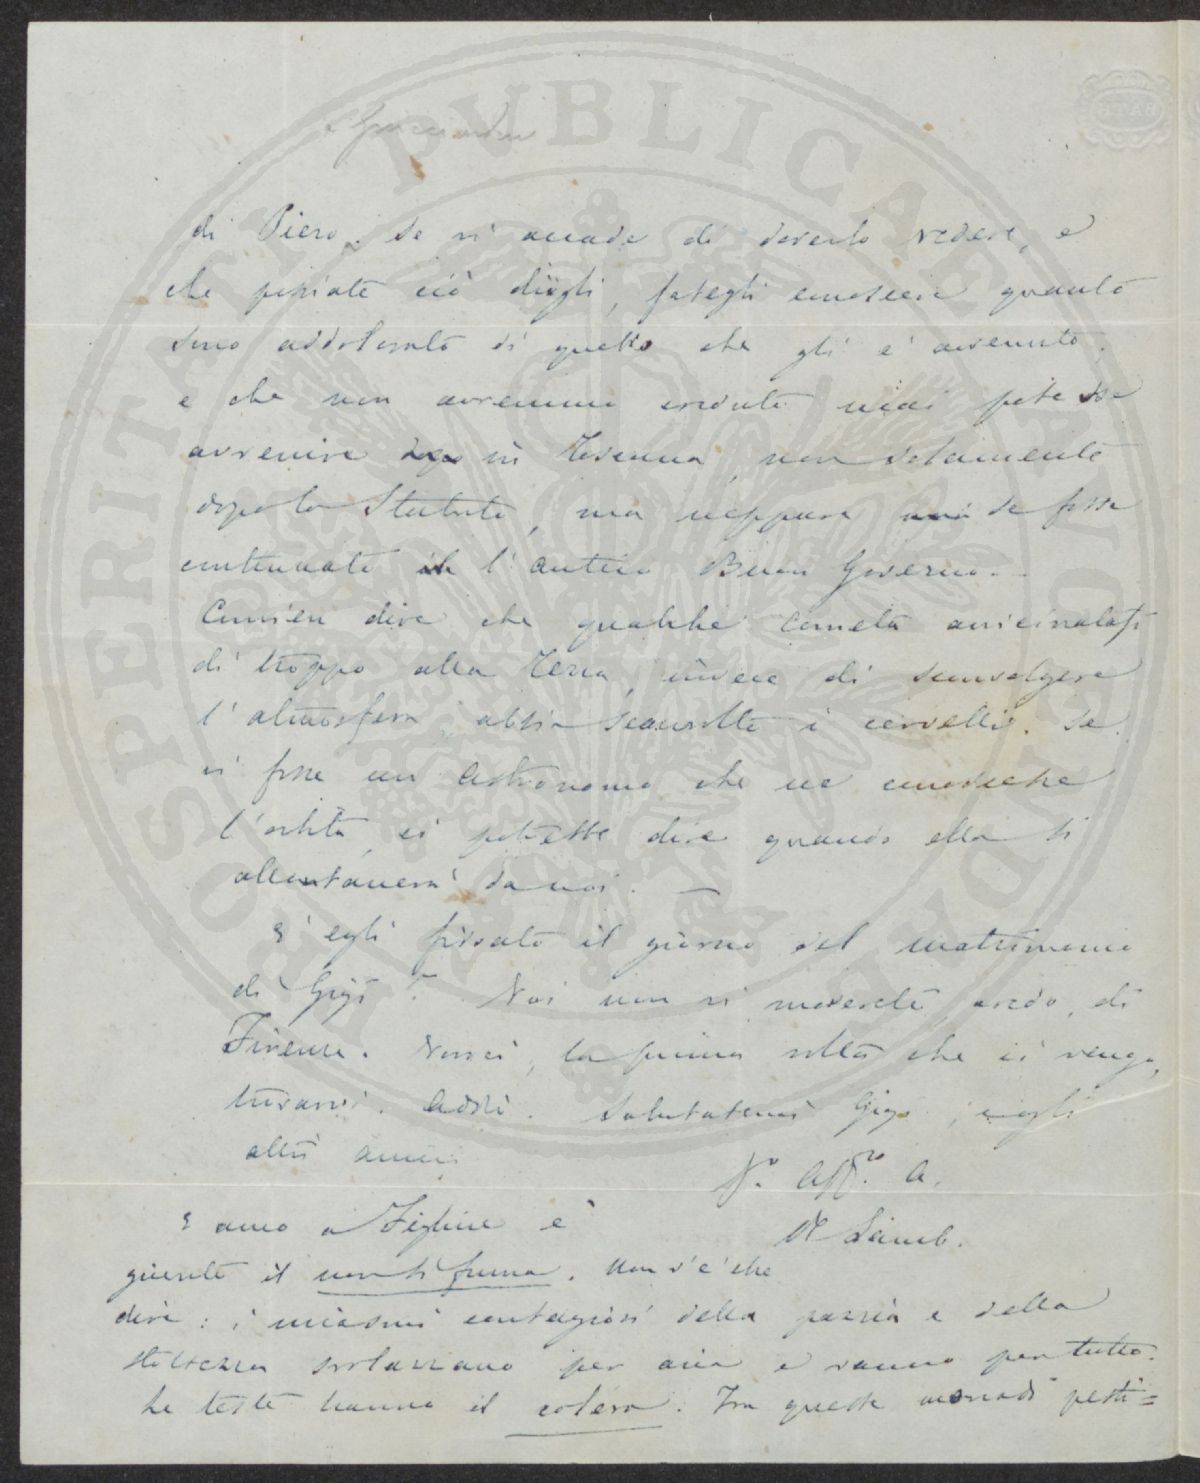 e Guicciardini
di Piero. Se vi accade di doverlo vedere, e
che possiate ciò dirgli, fategli conoscere quanto
sono addolorato di quello che gli è avvenuto,
e che non avremmo creduto mai potesse
avvenire in Toscana, non solamente
dopo lo Statuto, ma neppure se fosse
continuato l'antico Buon Governo. –
Convien dire che qualche cometa avvicinatasi
di troppo alla terra, invece di sconvolgere
l'atmosfera, abbia sconvolto i cervelli. Se
vi fosse un astronomo che ne conoscesse
l'orbita, ci potrebbe dire quando ella si
allontanerà da noi. —
E' egli fissato il giorno del matrimonio
di Gigi? Voi non vi moverete, credo, di
Firenze. Vorrei, la prima volta che ci venga,
trovarvi. Addio. Salutatemi Gigi, e gli
altri amici
Vo. Affmo. A.
R Lamb.
E anco a Figline è
giunto il non si fuma. Non v'è che
dire: i miasmi contagiosi della pazzia e della
stoltezza svolazzano per aria e vanno per tutto.
Le teste hanno il coléra. Tra queste monadi pesti=
PROSPERITATI PVBLICAE